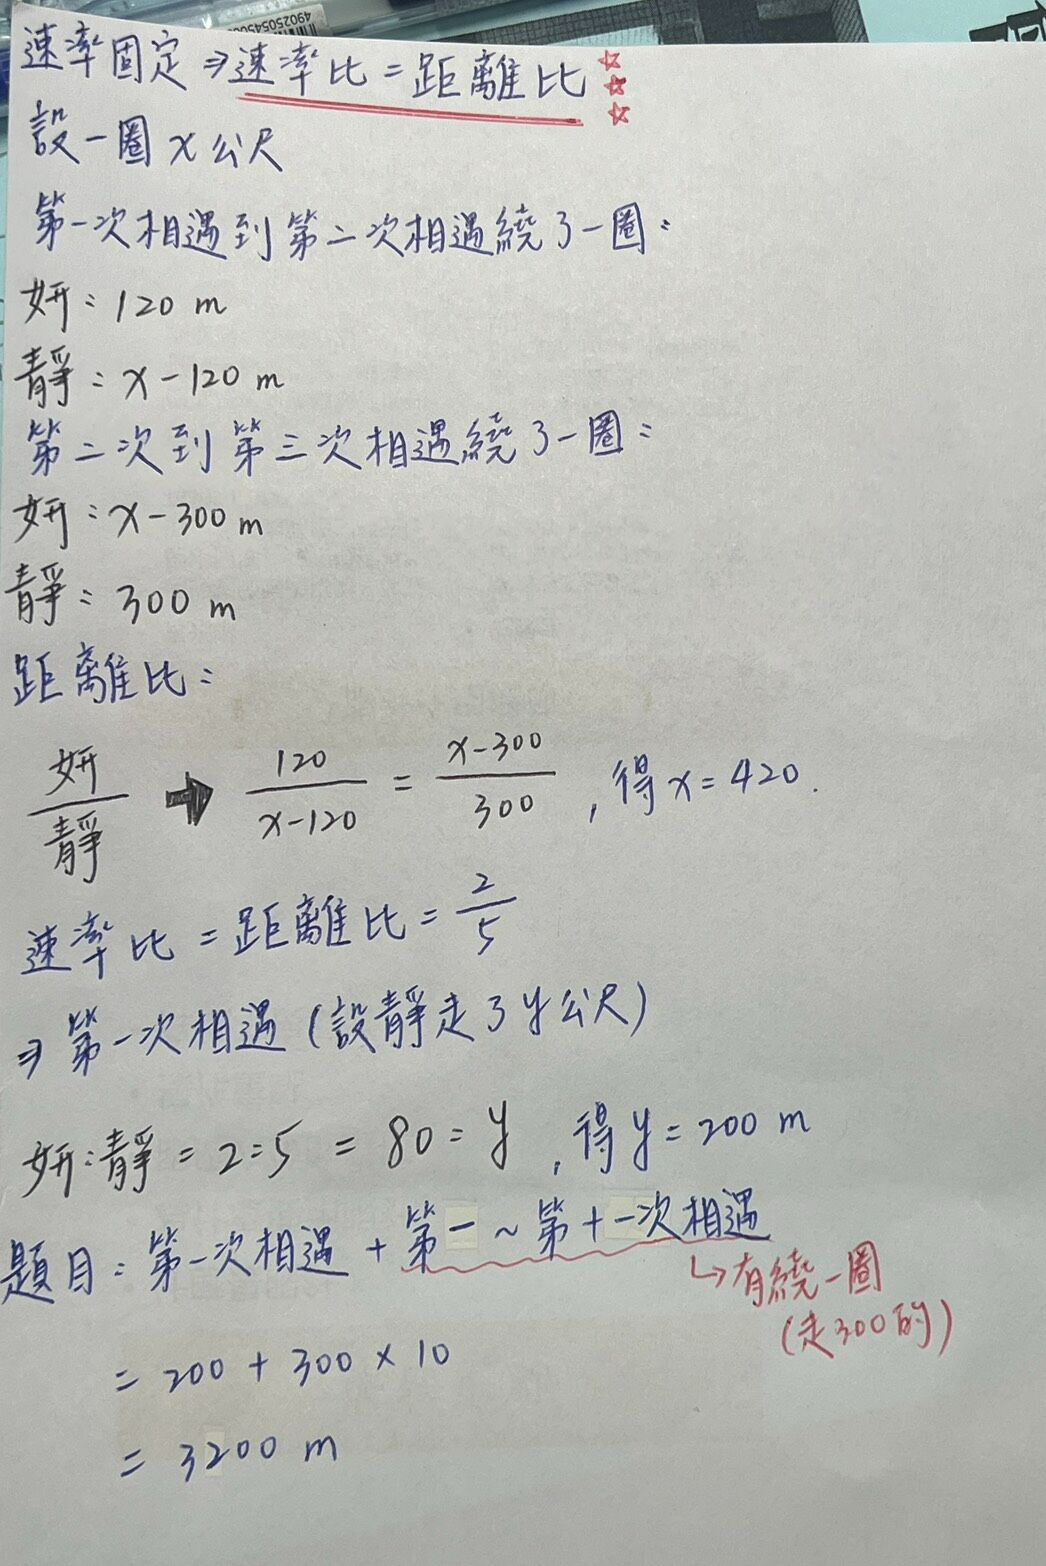 4902505450
速率固定⇒速率比=距離比 ☆☆☆
設一圈x公尺
第一次相遇到第二次相遇繞了一圈:
妍:120 m
靜:x-120 m
第二次到第三次相遇繞了一圈:
妍:x-300 m
靜:300 m
距離比:
妍/靜 → 120/(x-120) = (x-300)/300 , 得x=420.
速率比=距離比=2/5
⇒第一次相遇(設靜走了y公尺)
妍:靜=2:5=80:y , 得y=200 m
題目:第一次相遇+第一~第十一次相遇
↳有繞一圈
(走300的)
=200+300×10
=3200 m